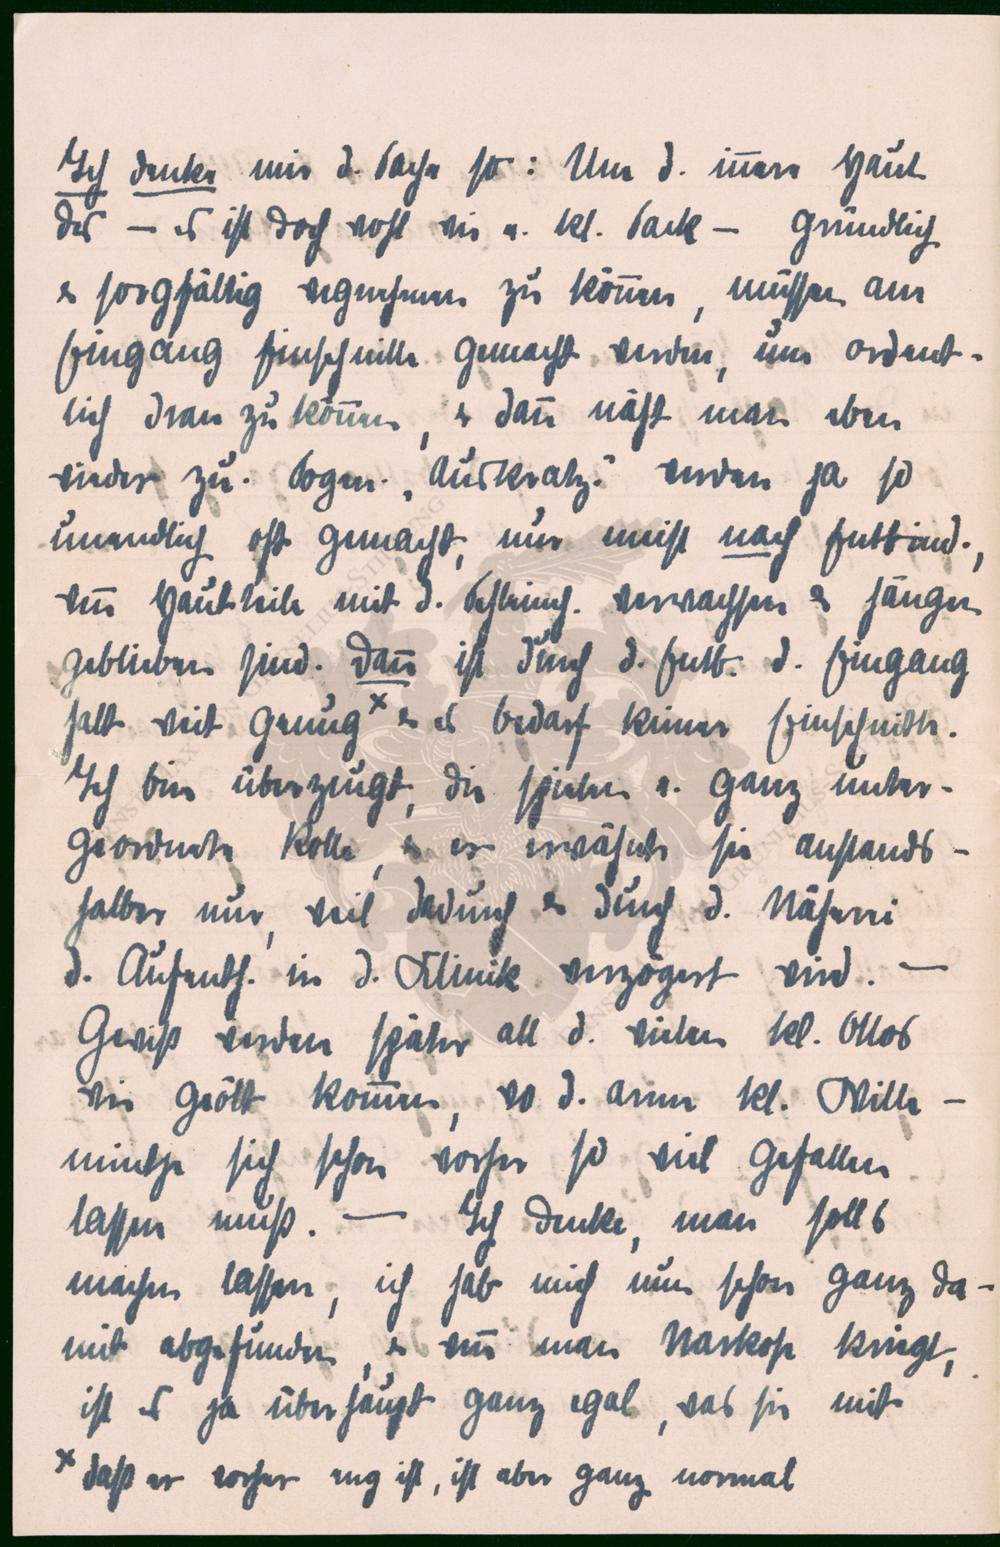 Ich denke mir d. Sache so: Um d. iñere Haut
des – es ist doch wohl wie e. kl. Sack – gründlich
& sorgfältig wegnehmen zu köñen, müssen am
Eingang Einschnitte gemacht werden, um ordent-
lich dran zu köñen, & dañ näht man eben
wieder zu. Sogen. „Auskratz." werden ja so
unendlich oft gemacht, nur meist nach Entbind.,
weñ Hautteile mit d. Schleimh. verwachsen & hängen
geblieben sind. Dañ ist durch d. Entb. d. Eingang
halt weit genug x & es bedarf keiner Einschnitte.
Ich bin überzeugt, die spielen e. ganz unter-
geordnete Rolle, & er erwähnte sie anstands-
halber nur, weil dadurch & durch d. Näherei
d. Aufenth. in d. Klinik verzögert wird. —
Gewiß werden später all d. vielen kl. Ottos
wie geölt kom̄en, wo d. arme kl. Wille-
mintje sich schon vorher so viel gefallen
lassen muß. — Ich denke, man solls
machen lassen, ich hab mich nun schon ganz da-
mit abgefunden, & weñ man Narkose kriegt,
ist es ja überhaupt ganz egal, was sie mit
x daß er vorher eng ist, ist aber ganz normal